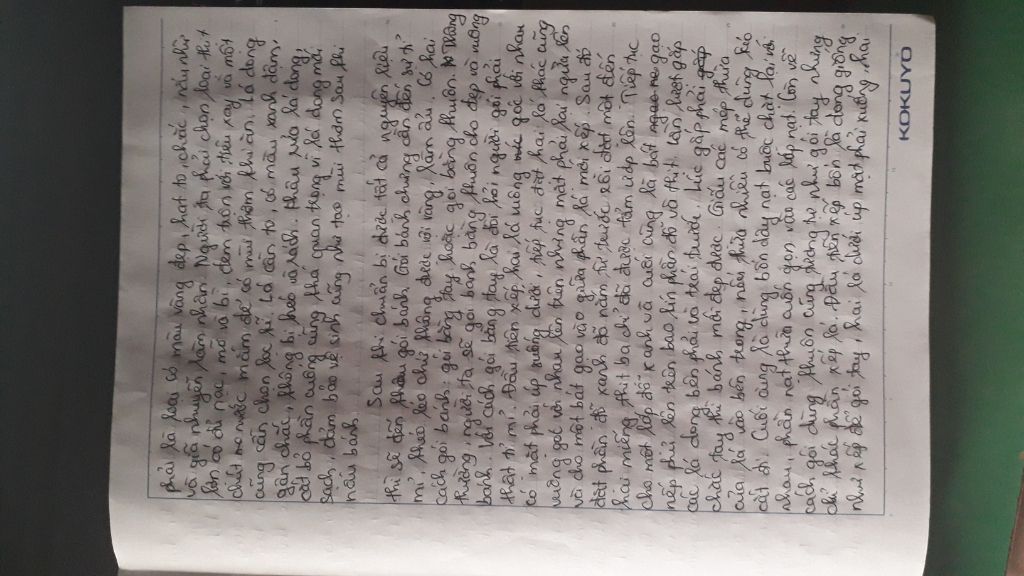 phải là loại có màu vàng đẹp, hạt to chắc, nấu nhừ
và giã nhuyễn hẳn nhân. Người ta phải chọn loại thịt
lợn có đủ nạc, mỡ và bì, đem trộn với tiêu xay và một
chút nước mắm để có mùi thơm khi ăn. Lá dong
cũng cần chọn lọc kĩ. Lá cần to, có màu xanh đậm,
gân chắc, không bị héo và rách. Khâu rửa lá dong,
cắt bỏ phần cuống cũng khá quan trọng vì lá dong mới
sạch, đảm bảo vệ sinh cũng như tạo mùi thơm sau khi
nấu bánh
Sau khi chuẩn bị được tất cả nguyên liệu
thì sẽ đến khâu gói bánh. Gói bánh chưng cần đến sự tỉ
mỉ, khéo léo chứ không được vội vàng, làm ẩu. Có hai
cách gói bánh: gói bằng tay hoặc gói bằng khuôn. Thông
thường, người ta sẽ gói bánh bằng khuôn cho đẹp và vuông
bánh. Với cách gói bằng tay là đòi hỏi người gói phải
thật tỉ mỉ. Đầu tiên xếp hai lá vuông góc với nhau
có mặt phải úp xuống dưới, tiếp tục đặt hai lá khác cũng
vuông góc với nhau lên trên nhưng mặt phải lại ngửa lên
và đổ một bát gạo vào giữa phần lá mới xếp. Sau đó
đặt phần đỗ xanh đã nắm từ trước rồi đặt một đến
hai miếng thịt ba chỉ đã được tẩm ướp lên. Tiếp tục
cho một lớp đỗ xanh và cuối cùng là bát gạo
nếp phủ lên trên bao kín phần đỗ và thịt. Lần lượt gấp
các lá dong bên phải và trái trước. Lúc gấp phải
chắc tay thì bánh mới đẹp được. Giấu các mép thừa
của lá vào bên trong, nếu thừa nhiều có thể dùng kéo
cắt đi. Cuối cùng là dùng bốn dây lạt buộc chặt lại với
nhau, phần lạt thừa cuốn gọn vào các lớp lạt. Còn về
cách gói dùng khuôn cũng tương tự như gói tay, nhưng
chỉ khác phần xếp lá. Đầu tiên xếp bốn lá dong giống
như xếp để gói tay, hai lá dưới úp mặt phải xuống, hai
KOKUYO